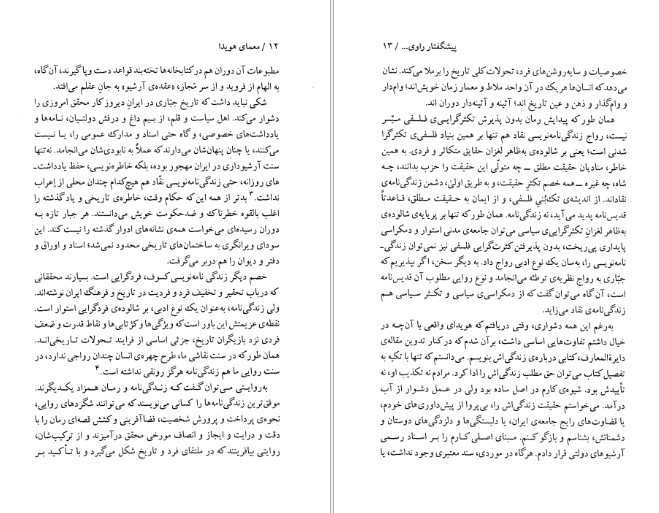 ۱۲ / معمای هویدا
مطبوعات آن دوران هم در کتابخانه‌ها تخته‌بند قواعد دست وپاگیرند، آن‌گاه،
به الهام از فروید و از سر مَجاز، «عقده‌ی آرشیو» به جانِ عقلم می‌افتد.
شکی نباید داشت که تاریخ جبّاری در ایرانِ دیروز کار محقق امروزی را
دشوار می‌کند. اهل سیاست و قلم، از بیم داغ و درفش دولتیان، نامه‌ها و
یادداشت‌های خصوصی، و گاه حتی اسناد و مدارک عمومی را، یا نیست
می‌کنند، یا چنان پنهان‌شان می‌دارند که عملاً به نابودی‌شان می‌انجامد. نه‌تنها
سنت آرشیوداری در ایران مهجور بوده، بلکه خاطره‌نویسی، حفظ یادداشت‌ـ
های روزانه، حتی زندگی‌نامه‌نویسی نقّاد هم هیچ‌کدام چندان محلی از اِعراب
نداشت.۳ بدتر از همه این که حکام وقت، خاطره‌ی تاریخی و یاد گذشته را
اغلب بالقوه خطرناک و ضدحکومت خویش می‌دانستند. هر جبار تازه به
دوران رسیده‌ای می‌خواست همه‌ی نشانه‌های ادوار گذشته را نیست کند. این
سودای ویرانگری به ساختمان‌های تاریخی محدود نمی‌شد؛ اسناد و اوراق و
دفتر و دیوان را هم دربر می‌گرفت.
خصم دیگر زندگی نامه‌نویسی کسوف، فردگرایی است. بسیارند محققانی
که درباب تحقیر و تخفیف فرد و فردیت در تاریخ و فرهنگ ایران نوشته‌اند.
ولی زندگی‌نامه، به‌عنوان یک نوع ادبی، بر شالوده‌ی فردگرایی استوار است.
نقطه‌ی عزیمتش این باور است که ویژگی‌ها و کژتابی‌ها و نقاط قدرت و ضعف
فردی نزد بازیگران تاریخ، جزئی اساسی از فرایند تحولات تاریخی‌اند.
همان طور که در سنت نقاشی ما، طرح چهره‌ی انسان چندان رواجی ندارد، در
سنت روایی ما هم زندگی‌نامه هرگز رونقی نداشته است.۴
به روایتی می‌توان گفت که زندگی‌نامه و رمان همزاد یکدیگرند.
موفق‌ترین زندگی‌نامه‌ها را کسانی می‌نویسند که می‌توانند شگردهای روایی،
نحوه‌ی پرداخت و پرورش شخصیت، فضاآفرینی و کشش قصه‌ای رمان را با
دقت و درایت و ایجاز و انصاف مورخی محقق درآمیزند و از ترکیب‌شان،
روایتی بیافرینند که در ملتقای فرد و تاریخ شکل می‌گیرد و با تأکید بر
پیشگفتار راوی... / ۱۳
خصوصیات و سایه‌روشن‌های فرد، تحولات کلی تاریخ را برملا می‌کند. نشان
می‌دهد که انسان‌ها هر یک در آن واحد ملاط و معمار زمان خویش‌اند؛ وام‌دار
و وام‌گذار و ذهن و عین تاریخ اند؛ آئینه و آئینه‌دار دوران اند.
همان طور که پیدایش رمان بدون پذیرش تکثرگرایی‌ی فلسفی میّسر
نیست، رواج زندگی‌نامه‌نویسی نقاد هم تنها بر همین بنیاد فلسفی تکثرگرا
شدنی است؛ یعنی بر شالوده‌ی به‌ظاهر لغزان حقایق متکاثر و فردی. به همین
خاطر، منادیان حقیقت مطلق ـــ چه متولّی این حقیقت را حزب بدانند، چه
شاه، چه غیره ـــ همه خصم تکثر حقیقت، و به طریق اولیٰ، دشمن زندگی‌نامه‌ی
نقاداند. از اندیشه‌ی تک‌بُنی فلسفی، و از ایمان به حقیقت مطلق، قاعدتاً
قدیس‌نامه پدید می‌آید، نه زندگی‌نامه. همان طور که تنها بر پرپایه‌ی شالوده‌ی
به‌ظاهر لغزان تکثرگرایی‌ی سیاسی می‌توان جامعه‌ی مدنی استوار و دمکراسی
پایداری پی‌ریخت، بدون پذیرفتن کثرت‌گرایی فلسفی نیز نمی‌توان زندگی‌ـ
نامه‌نویسی را، به‌سان یک نوع ادبی رواج داد. به دیگر سخن، اگر بپذیریم که
جبّاری به رواج نظریه‌ی توطئه می‌انجامد و نوع روایی مطلوب آن قدیس‌نامه
است، آن‌گاه می‌توان گفت که از دمکراسی‌ی سیاسی و تکثر سیاسی هم
زندگی‌نامه‌ی نقاد می‌زاید.
به‌رغم این همه دشواری، وقتی دریافتم که هویدای واقعی با آن‌چه در
خیال داشتم تفاوت‌هایی اساسی داشت، برآن شدم که در کنار تدوین مقاله‌ی
دایرةالمعارف، کتابی درباره‌ی زندگی‌اش بنویسم. می‌دانستم که تنها با تکیه به
تفصیل کتاب می‌توان حق مطلب زندگی‌اش را ادا کرد. مرادم نه تکذیب او، نه
تأییدش بود. شیوه‌ی کارم در اصل ساده بود ولی در عمل دشوار از آب
درآمد. می‌خواستم حقیقت زندگی‌اش را، بی‌پروا از پیش‌داوری‌های خودم،
یا قضاوت‌های رایج جامعه‌ی ایران، یا دلبستگی‌ها و دلزدگی‌های دوستان و
دشمنانش، بشناسم و بازگو کنم. مبنای اصلی کارم را بر اسناد رسمی
آرشیوهای دولتی قرار دادم. هرگاه در موردی، سند معتبری وجود نداشت، یا